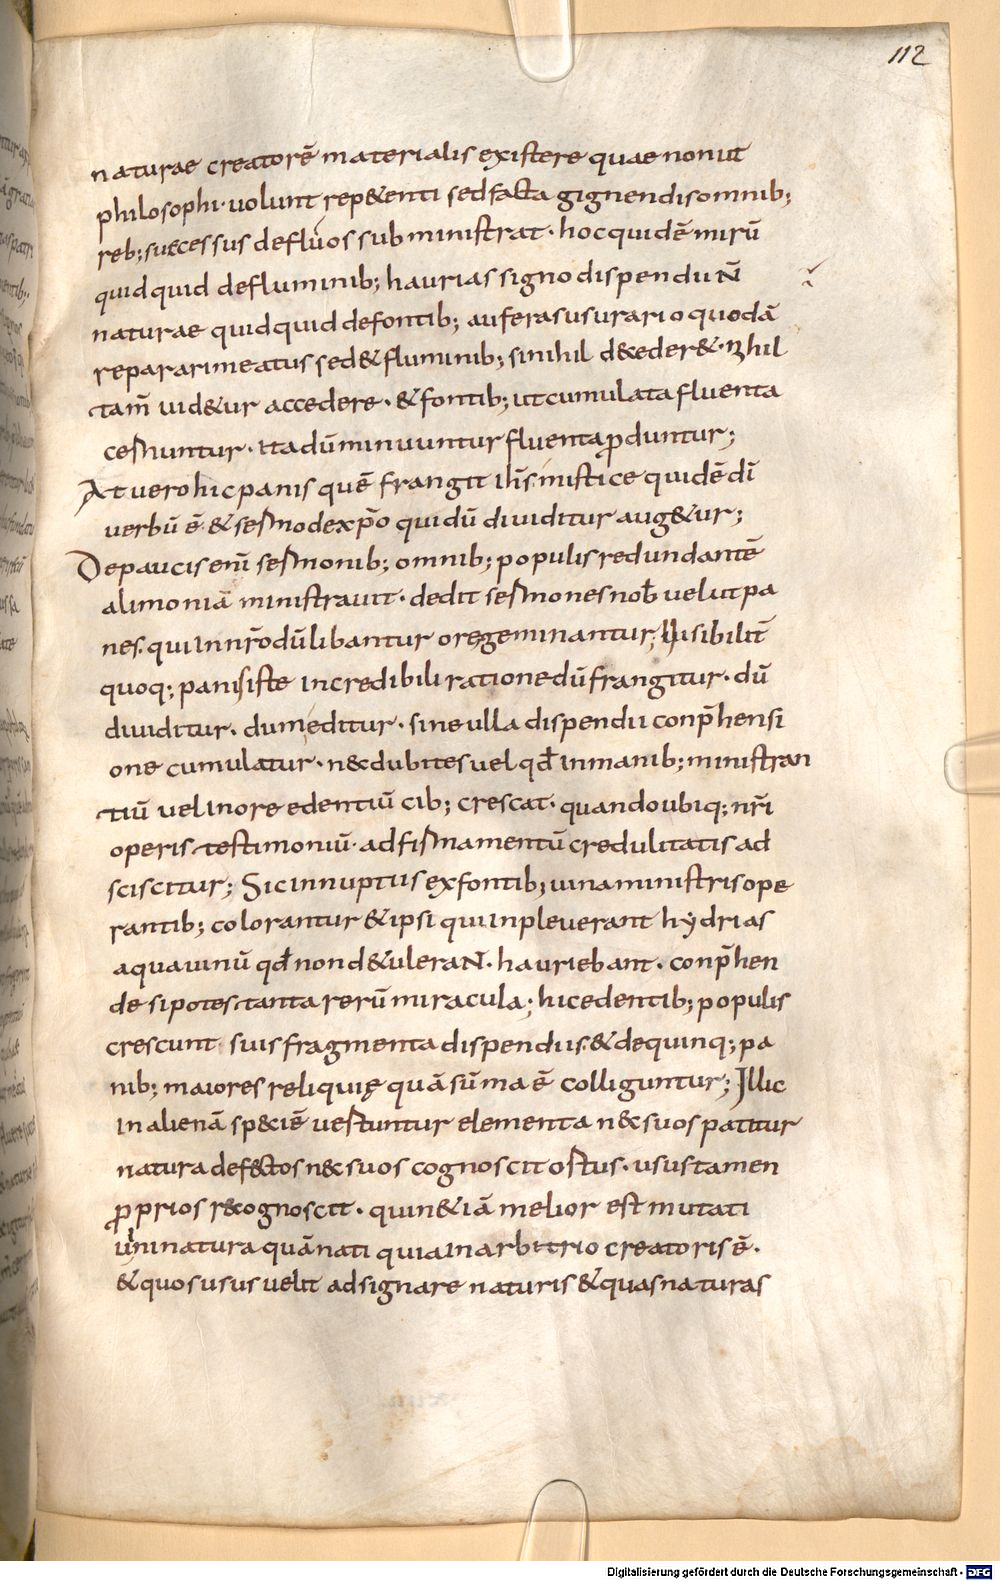 112
naturae creatorē materialis existere quae non ut
philosophi· uolunt rep&enti sed facta gignendis omnib;
reb; successus defluos subministrat· hoc quidē mirū
quidquid de fluminib; haurias signo dispendu N̄
naturae quidquid de fontib; auferas usurario quodā
reparari meatus sed & fluminib; si nihil d&eder&· Nihil
tam̄ uid&ur accedere· & fontib; ut cumulata fluenta
cernuntur· ita dū minuuntur fluenta ꝓduntur;
At uero hic panis quē frangit ih̄s mistice quidē dī
uerbū ē & sermo de xp̄o qui dū diuiditur aug&ur;
De paucis eni̅ sermonib; omnib; populis redundantē
alimoniā ministrauit· dedit sermones nob̄ uelut pa
nes· qui in nr̄o dū libantur ore geminantur; Uisibilit̄
quoq; panis iste incredibili ratione dū frangitur· dū
diuiditur· dum editur· sine ulla dispendii conp̄hensi
one cumulatur· n&dubites uel qd̄ in manib; ministran
tiū uel in ore edentiū cib; crescat· quando ubiq; nr̄i
operis testimoniū· ad firmamentū credulitatis ad
sciscitur; Sic in nuptiis ex fontib; uina ministris ope
rantib; colorantur & ipsi qui inpleverant hydrias
aqua uinū qd̄ non d&uleraN· hauriebant· conp̄hen
de si potes tanta rerū miracula; hic edentib; populis
crescunt suis fragmenta dispendiis· & de quinq; pa
nib; maiores reliquię quā sūma ē colliguntur; Illic
in alienā sp&iē uertuntur elementa n&suos patitur
natura def&tos n&suos cognoscit ortus· usus tamen
ꝓprios r&ognoscit· quin&iā melior est mutati
uini natura quā nati quia in arbitrio creatoris ē·
& quos usus uelit adsignare naturis & quas naturas
Digitalisierung gefördert durch die Deutsche Forschungsgemeinschaft - DFG